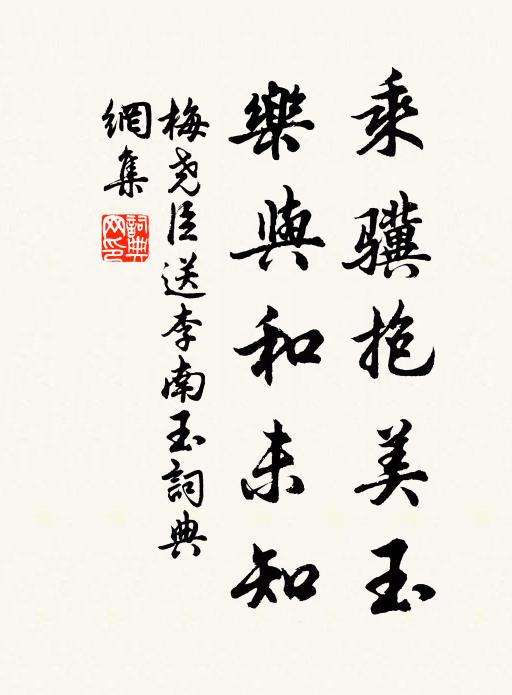 乘骥抱美玉
樂與和未知
梅尧臣送李南玉詞典
網集
詞典
网印